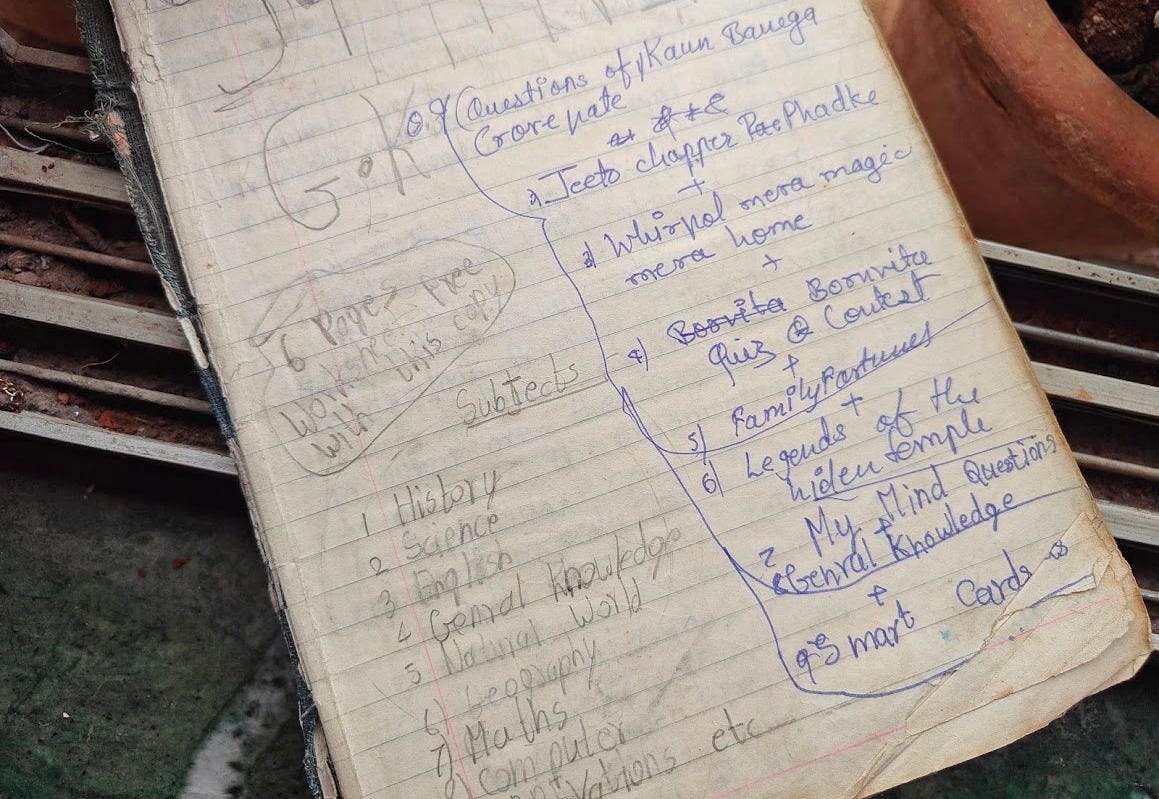 G.K
6 Pages free
works
with this copy
Subjects
1 History
2 Science
3 English
4 Genral Knowledge
5 Natural World
6 Geography
7) Maths
8) Computer
etc
Q.9 (Questions of Kaun Banega
Crorepate
2) Jeeto chapper Phadke
+
3) Whirpol mera magic
mera home
+
4) Bornvita
Quiz Contest
+
5) Family Fortunes
+
6) Legends of the
hiden temple
7 My Mind Questions
+
8 Genral Knowledge
+
9 Smart Cards